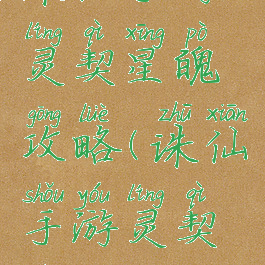 líng qì xīng pò
灵契星魄
gōng lüè zhū xiān
攻略(诛仙
shǒu yóu líng qì
手游灵契